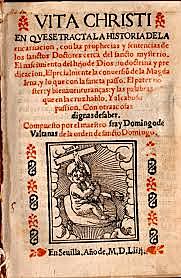 VITA CHRISTI
EN QUE SE TRACTA LA HISTORIA DE LA
encarnacion, con las prophecias y sentencias de
los sanctos Doctores cerca del sancto mysterio.
El nascimiento del hijo de Dios su doctrina y pre
dicacion, Especialmente la conversiõ de la Magda
lena, y lo que con la sancta passio. El pater no
ster: y bienauenturanças: y las palabras
que en la cruz hablo, Y al cabo la
passion. Con otras cosas
dignas de saber.
Compuesto por el maestro fray Domingo de
Valtanas de la orden de sancto Domingo.
En Sevilla, Año de, M, D, Liiij.